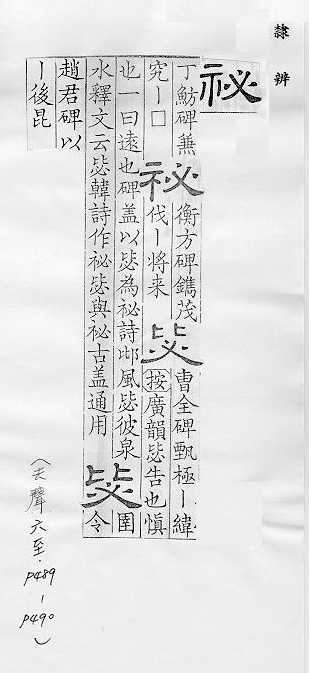 隸辨
祕
丁魴碑無
究〡□
祕
衡方碑鐫茂
伐〡将来
毖
曹全碑甄極〡緯
按廣韻毖告也慎
也一曰遠也碑盖以毖為祕詩邶風毖彼泉
水釋文云毖韓詩作祕毖與祕古盖通用
毖
圉
令
趙君碑以
〡後昆
(去聲六至.P489-P490)